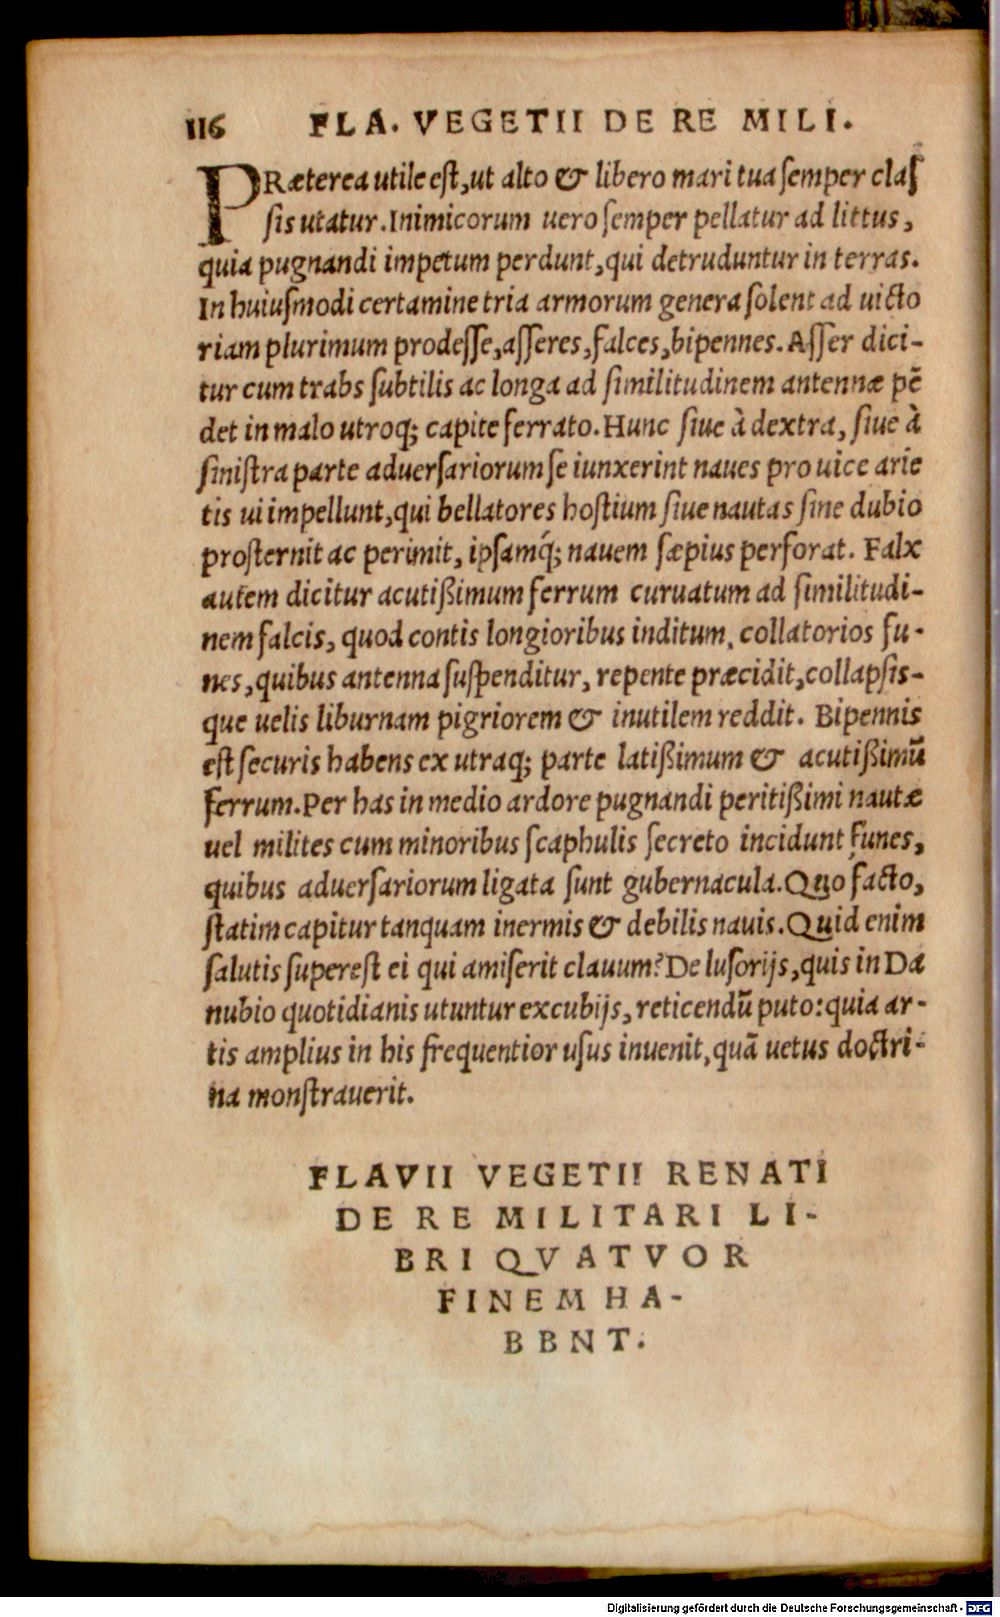 116 FLA. VEGETII DE RE MILI.
PRæterea utile est, ut alto & libero mari tua semper clas
sis utatur. Inimicorum uero semper pellatur ad littus,
quia pugnandi impetum perdunt, qui detruduntur in terras.
In huiusmodi certamine tria armorum genera solent ad uicto
riam plurimum prodesse, asseres, falces, bipennes. Asser dici-
tur cum trabs subtilis ac longa ad similitudinem antennæ pē
det in malo utroq; capite ferrato. Hunc siue à dextra, siue à
sinistra parte aduersariorum se iunxerint naues pro uice arie
tis ui impellunt, qui bellatores hostium siue nautas sine dubio
prosternit ac perimit, ipsamq́; nauem sæpius perforat. Falx
autem dicitur acutißimum ferrum curuatum ad similitudi-
nem falcis, quod contis longioribus inditum, collatorios fu-
nes, quibus antenna suspenditur, repente præcidit, collapsis-
que uelis liburnam pigriorem & inutilem reddit. Bipennis
est securis habens ex utraq; parte latißimum & acutißimū
ferrum. Per has in medio ardore pugnandi peritißimi nautæ
uel milites cum minoribus scaphulis secreto incidunt funes,
quibus aduersariorum ligata sunt gubernacula. Quo facto,
statim capitur tanquam inermis & debilis nauis. Quid enim
salutis superest ei qui amiserit clauum? De lusorijs, quis in Da
nubio quotidianis utuntur excubijs, reticendū puto: quia ar-
tis amplius in his frequentior usus inuenit, quā uetus doctri-
na monstrauerit.
FLAVII VEGETII RENATI
DE RE MILITARI LI-
BRI QVATVOR
FINEM HA-
BBNT.
Digitalisierung gefördert durch die Deutsche Forschungsgemeinschaft - DFG